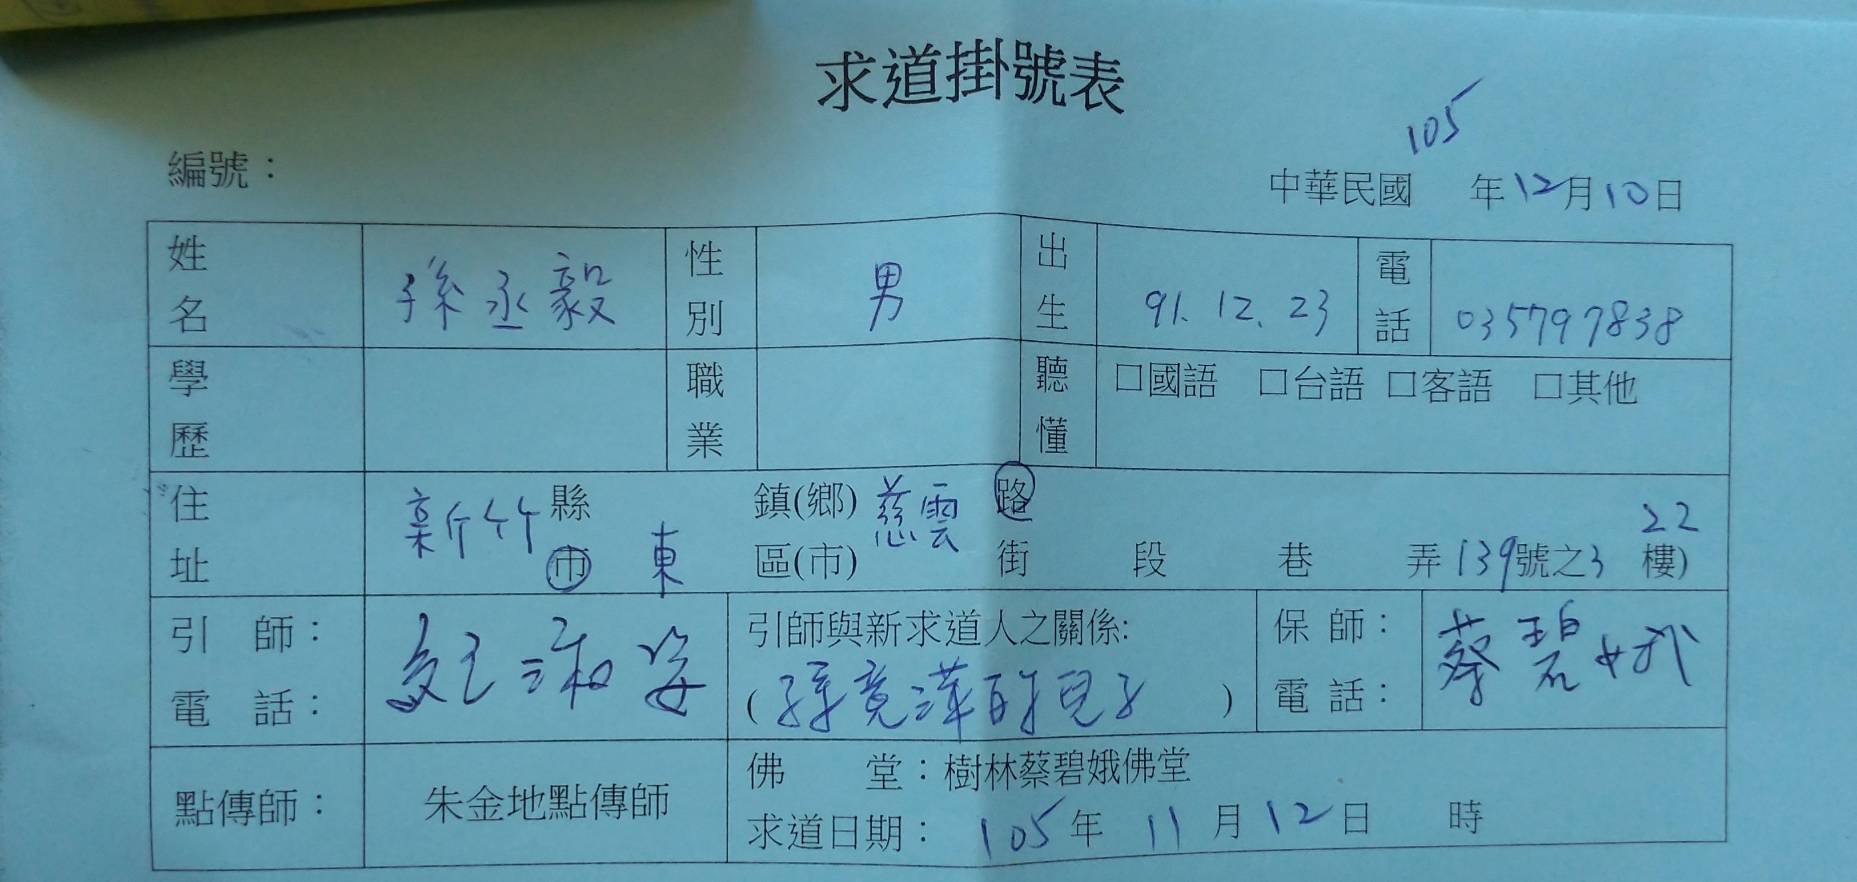 求道掛號表
105
編號：
中華民國 年12月10日
姓名 孫丞毅 性別 男 出生 91.12.23 電話 035797838
學歷 職業 聽懂 □國語 □台語 □客語 □其他
住址 新竹 縣市 東 鎮(鄉)區(市) 慈雲 路街 段 巷 弄 139號之3 22樓)
引師：
電話：
引師與新求道人之關係:
( 的兒子 )
保師： 蔡碧娥
電話：
點傳師： 朱金地點傳師
佛堂：樹林蔡碧娥佛堂
求道日期： 105年 11月12日 時